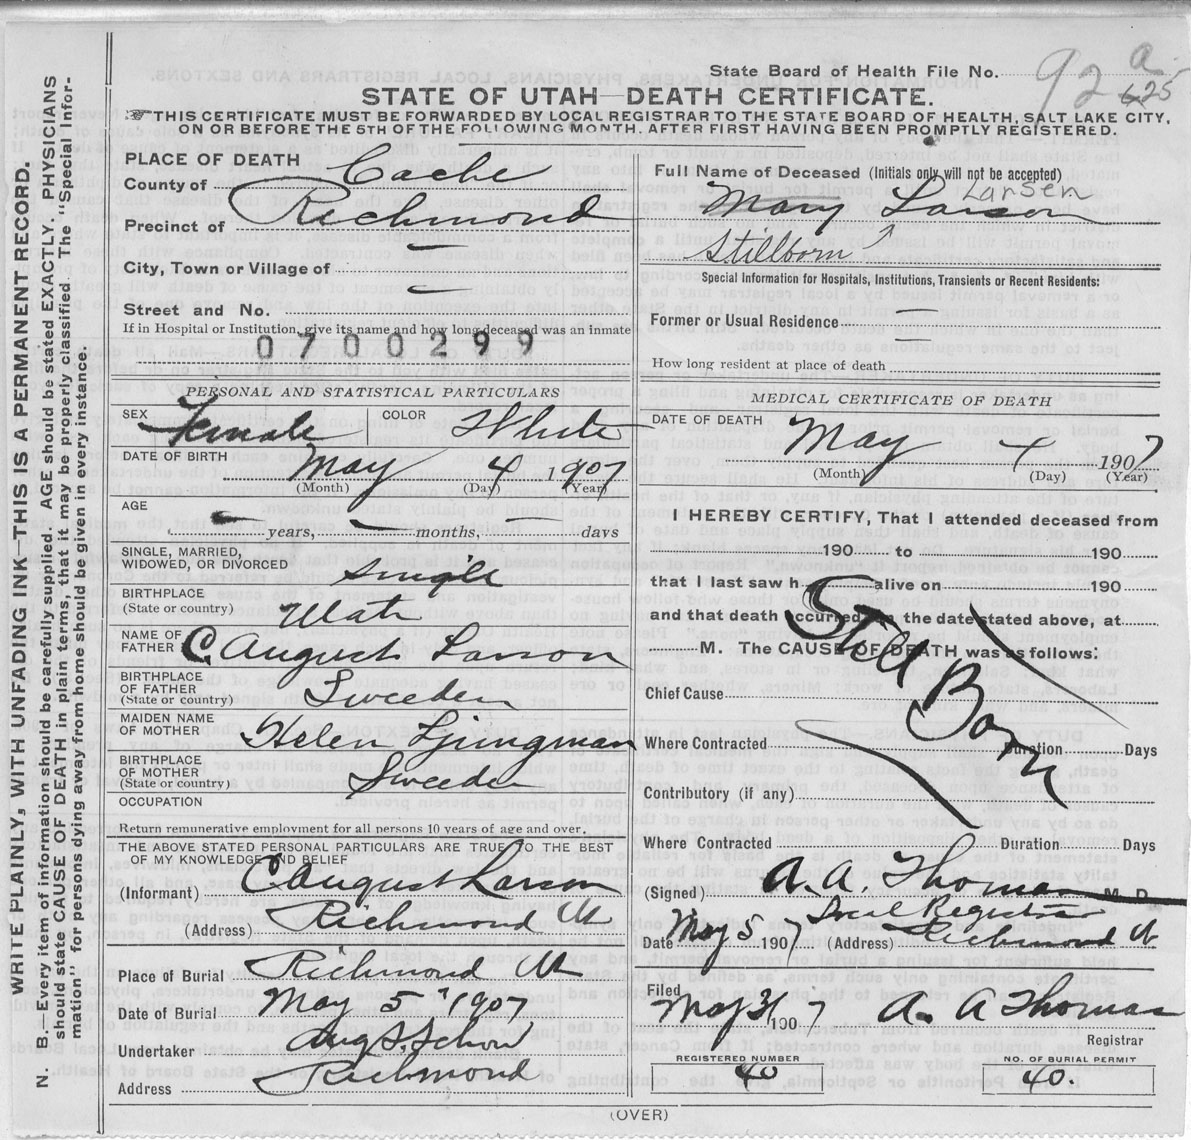 State Board of Health File No. 92 a
625
STATE OF UTAH—DEATH CERTIFICATE.
THIS CERTIFICATE MUST BE FORWARDED BY LOCAL REGISTRAR TO THE STATE BOARD OF HEALTH, SALT LAKE CITY,
ON OR BEFORE THE 5TH OF THE FOLLOWING MONTH. AFTER FIRST HAVING BEEN PROMPTLY REGISTERED.
WRITE PLAINLY, WITH UNFADING INK—THIS IS A PERMANENT RECORD.
N. B.—Every item of information should be carefully supplied. AGE should be stated EXACTLY. PHYSICIANS
should state CAUSE OF DEATH in plain terms, that it may be properly classified. The "Special Infor-
mation" for persons dying away from home should be given in every instance.
PLACE OF DEATH
County of Cache
Precinct of Richmond
City, Town or Village of —
Street and No. —
If in Hospital or Institution, give its name and how long deceased was an inmate
0700299
PERSONAL AND STATISTICAL PARTICULARS
SEX Female COLOR White
DATE OF BIRTH May 4 1907
(Month) (Day) (Year)
AGE
years, months, days
SINGLE, MARRIED,
WIDOWED, OR DIVORCED Single
BIRTHPLACE
(State or country) Utah
NAME OF
FATHER C. August Larson
BIRTHPLACE
OF FATHER
(State or country) Sweeden
MAIDEN NAME
OF MOTHER Helen Ljungman
BIRTHPLACE
OF MOTHER
(State or country) Sweeden
OCCUPATION
Return remunerative employment for all persons 10 years of age and over.
THE ABOVE STATED PERSONAL PARTICULARS ARE TRUE TO THE BEST
OF MY KNOWLEDGE AND BELIEF
(Informant) C August Larson
(Address) Richmond Ut
Place of Burial Richmond Ut
Date of Burial May 5" 1907
Undertaker Aug S Schow
Address Richmond
Full Name of Deceased (Initials only will not be accepted)
Larsen
Mary Larson
Stillborn
Special Information for Hospitals, Institutions, Transients or Recent Residents:
Former or Usual Residence —
How long resident at place of death
MEDICAL CERTIFICATE OF DEATH
DATE OF DEATH May 4 1907
(Month) (Day) (Year)
I HEREBY CERTIFY, That I attended deceased from
190 to 190
that I last saw h alive on 190
and that death occurred on the date stated above, at
M. The CAUSE OF DEATH was as follows:
Still Born
Chief Cause
Where Contracted Duration Days
Contributory (if any)
Where Contracted Duration Days
(Signed) A. A. Thomas M. D.
Local Registrar
Date May 5 1907 (Address) Richmond Ut
Filed
May 31 1907 A. A Thomas
Registrar
REGISTERED NUMBER
40
NO. OF BURIAL PERMIT
40.
(OVER)